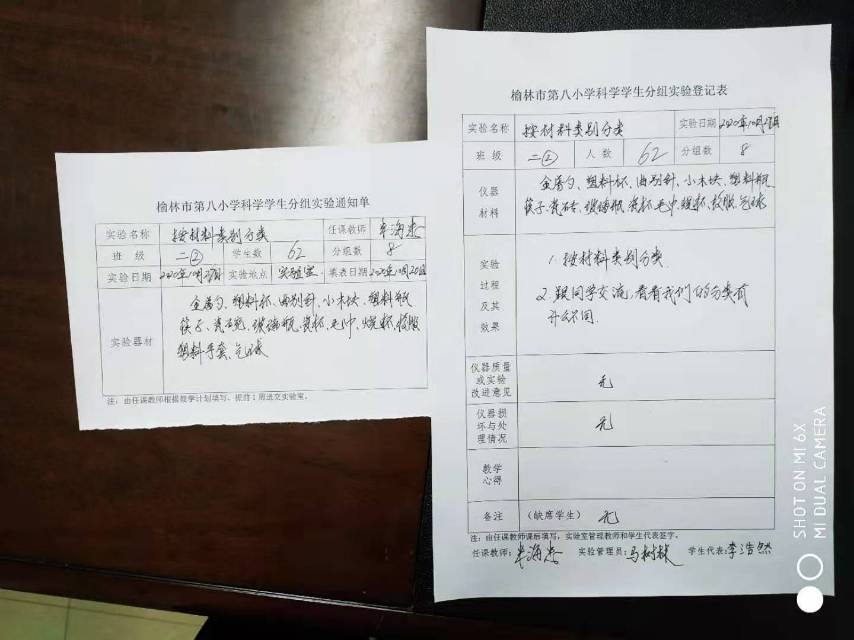 榆林市第八小学科学学生分组实验通知单
实验名称 按材料类别分类 任课教师
班 级 二② 学生数 62 分组数 8
实验日期 2020年10月27日 实验地点 实验室 填表日期 2020年10月20日
实验器材
金属勺、塑料杯、曲别针、小木块、塑料瓶
筷子、瓷砖、玻璃瓶、瓷杯、毛巾、烧杯、
塑料手套、气球
注：由任课教师根据教学计划填写，提前1周送交实验室。
榆林市第八小学科学学生分组实验登记表
实验名称 按材料类别分类 实验日期 2020年10月27日
班 级 二② 人 数 62 分组数 8
仪器
材料
金属勺、塑料杯、曲别针、小木块、塑料瓶
筷子、瓷砖、玻璃瓶、瓷杯、毛巾、烧杯、气球
实验
过程
及其
效果
1. 按材料类别分类
2. 跟同学交流，看看我们的分类有
什么不同.
仪器质量
或实验
改进意见
无
仪器损
坏与处
理情况
无
教学
心得
备注 （缺席学生） 无
注：由任课教师课后填写，实验室管理教师和学生代表签字。
任课教师： 实验管理员：马树林 学生代表：李浩然
SHOT ON MI 6X
MI DUAL CAMERA